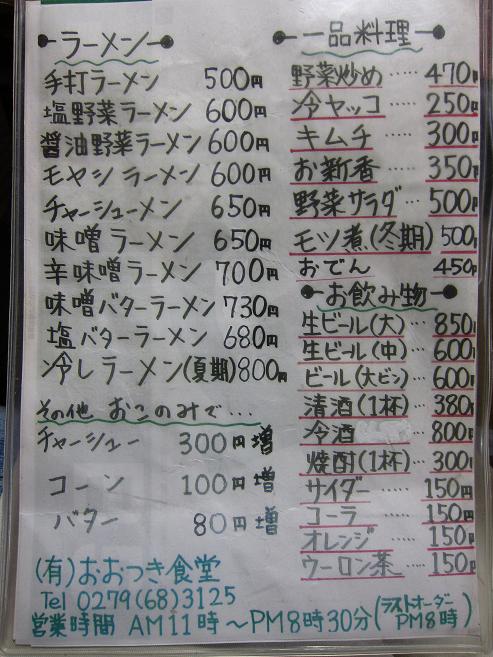 ラーメン
手打ラーメン 500円
塩野菜ラーメン 600円
醤油野菜ラーメン 600円
モヤシラーメン 600円
チャーシューメン 650円
味噌ラーメン 650円
辛味噌ラーメン 700円
味噌バターラーメン 730円
塩バターラーメン 680円
冷しラーメン(夏期) 800円
その他 おこのみで…
チャーシュー 300円増
コーン 100円増
バター 80円増
一品料理
野菜炒め …… 470円
冷ヤッコ …… 250円
キムチ …… 300円
お新香 …… 350円
野菜サラダ … 500円
モツ煮(冬期) 500円
おでん 450円
お飲み物
生ビール(大) … 850円
生ビール(中) … 600円
ビール(大ビン) … 600円
清酒(1杯) … 380円
冷酒 …… 800円
焼酎(1杯) … 300円
サイダー …… 150円
コーラ …… 150円
オレンジ …… 150円
ウーロン茶 …… 150円
(有)おおつき食堂
Tel 0279(68)3125
営業時間 AM11時～PM8時30分(ラストオーダーPM8時)